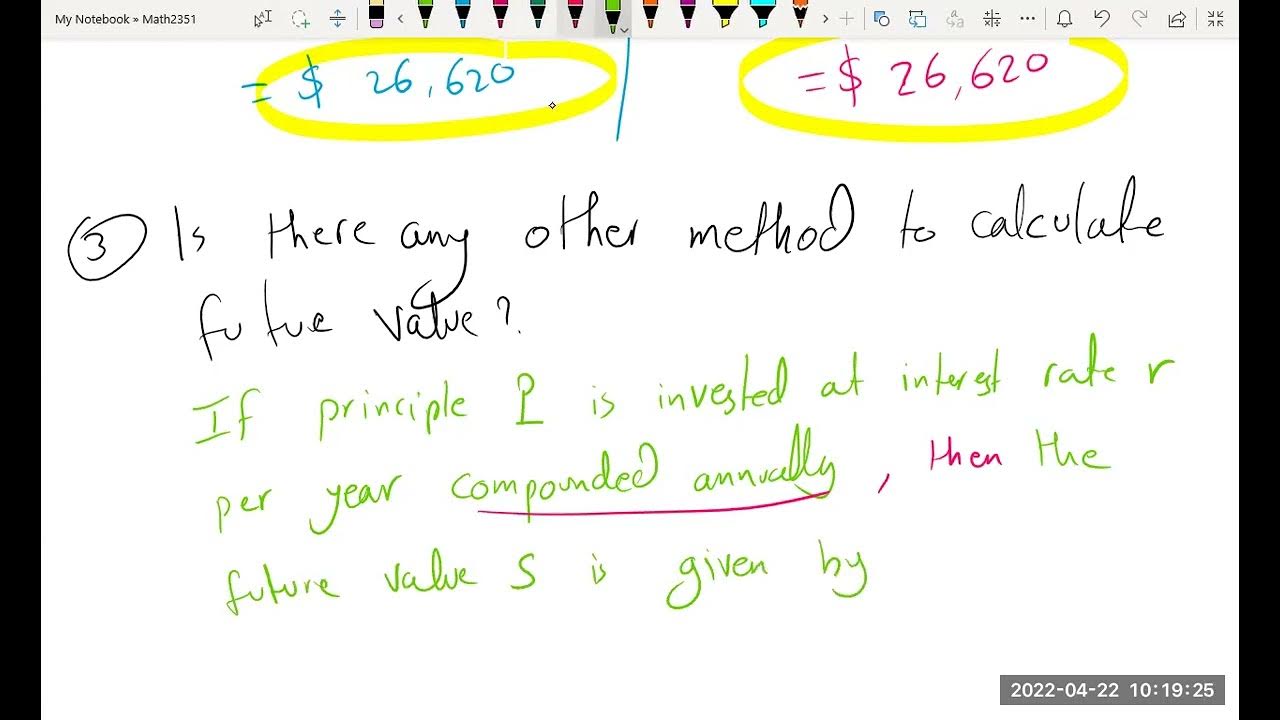 My Notebook » Math2351
= $ 26,620
= $ 26,620
3 Is there any other method to calculate
future value?
If principle P is invested at interest rate r
per year compounded annually, then the
future value S is given by
2022-04-22 10:19:25